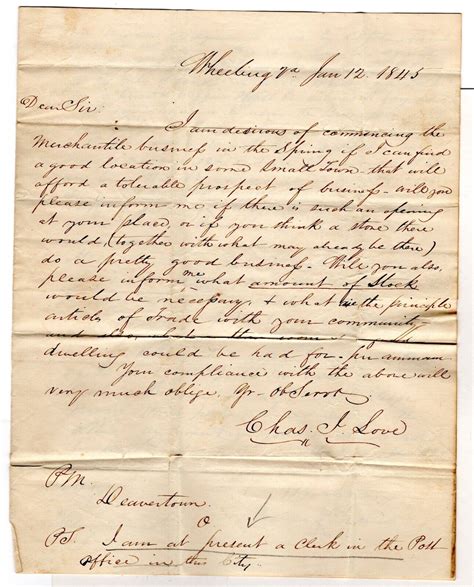 Wheeling Va Jan 12. 1845
Dear Sir.
I am desirous of commencing the
Merchantile business in the Spring if I can find
a good location in some Small Town that will
afford a tolerable prospect of business - will you
please inform me if there is such an opening
at your place, or if you think a store there
would (together with what may already be there)
do a pretty good business - Will you also,
please inform me what amount of Stock
would be necessary, & what is the principle
articles of trade with your community
and also what
dwelling could be had for - per annum
Your compliance with the above will
very much oblige. Yr - Ob Servt
Chas. J. Love
P.M.
Deavertown.
O
PS. I am at present a Clerk in the Post
office in this City.